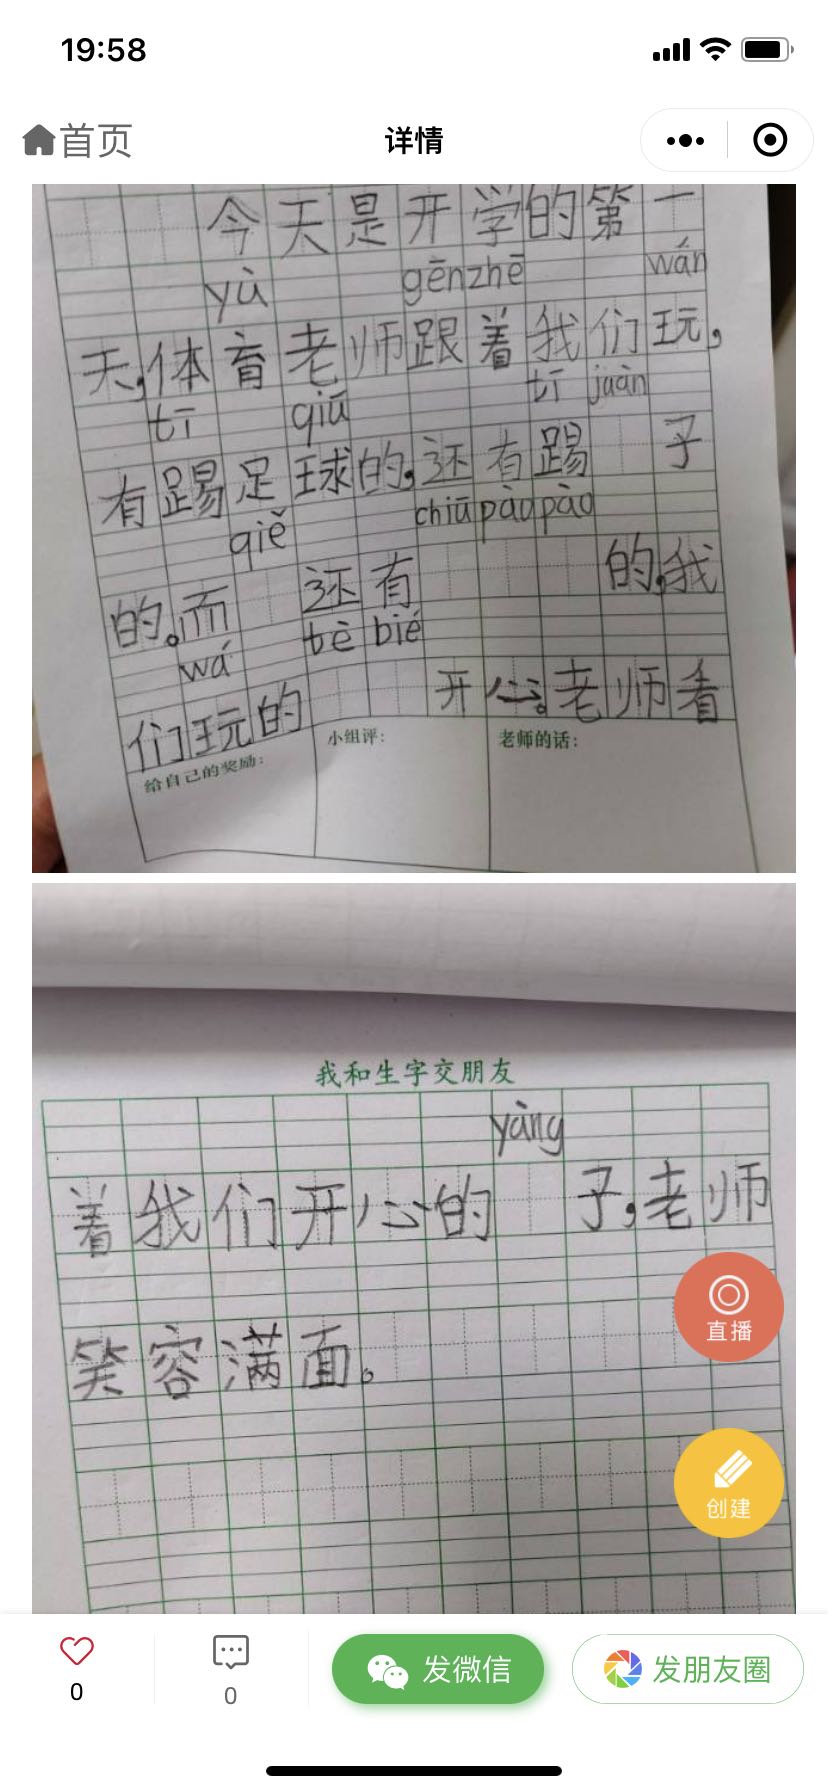 19:58
首页
详情
今天是开学的第一
yù gēnzhē wán
天,体育老师跟着我们玩,
tī qiú tī juàn
有踢足球的,还有踢 子
qiě chiūpàopào
的。而 还有 的,我
wá tè bié
们玩的 开心。老师看
给自己的奖励:
小组评:
老师的话:
我和生字交朋友
yàng
着我们开心的 子,老师
直播
笑容满面。
创建
0
0
发微信
发朋友圈